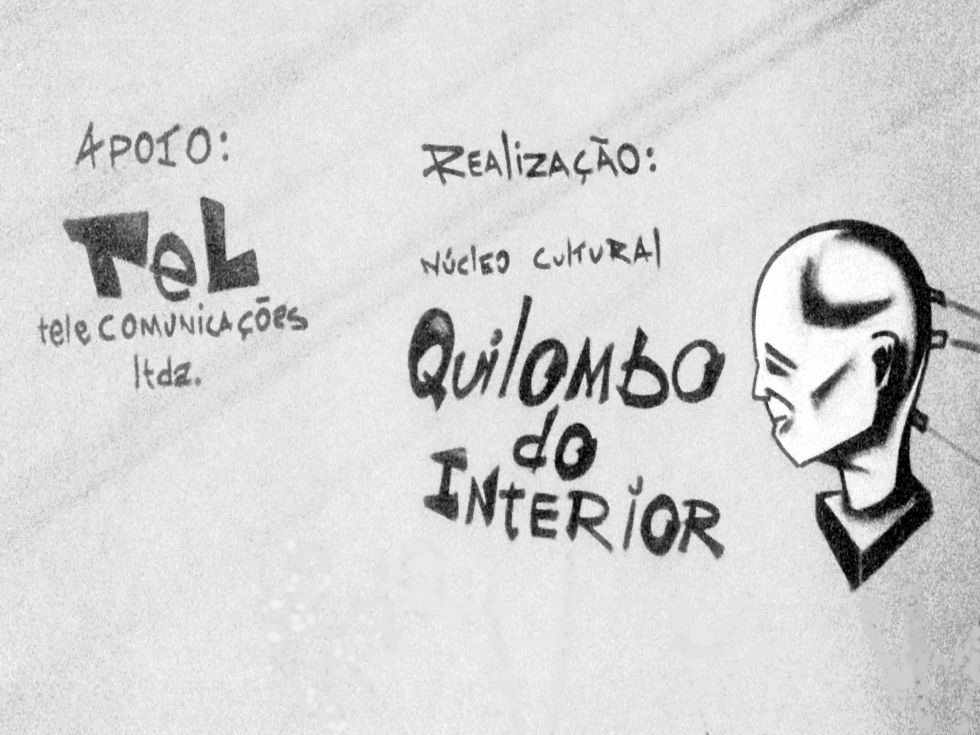 APOIO:
TeL
teleCOMUNicAções
ltda.
REAlizAÇÃO:
NÚcleo CUlTURAl
QuilOMbO
do
INtERiOR